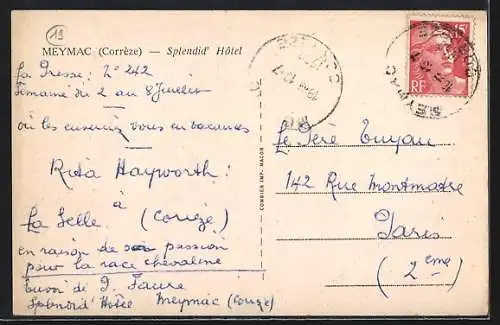 19
MEYMAC (Corrèze) — Splendid' Hôtel
La Presse: No 242
Semaine du 2 au 8 Juillet
où les enverriez vous en vacances
Rita Hayworth:
à
La Selle. (Corrèze)
en raison de sa passion
pour la race chevaline
Envoi de J. Faure
Splendid' Hôtel Meymac (Corrèze)
COMBIER IMP. MACON
15F
RF
MEYMAC
Le Père
142 Rue Montmartre
Paris
(2eme)